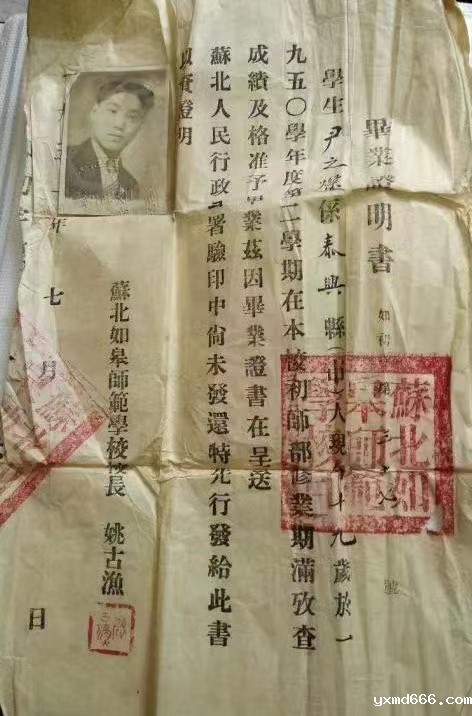 畢業證明書
如初
號
學生尹之 係泰興縣(市)人現年十九歲於一
九五〇學年度第二學期在本校初師部修業期滿攷查
成績及格准予畢業茲因畢業證書在呈送
蘇北人民行政公署驗印中尚未發還特先行發給此書
以資證明
蘇北如皋師範學校校長 姚古漁
年七月 日
蘇北如
皋師範
yxmd666.com